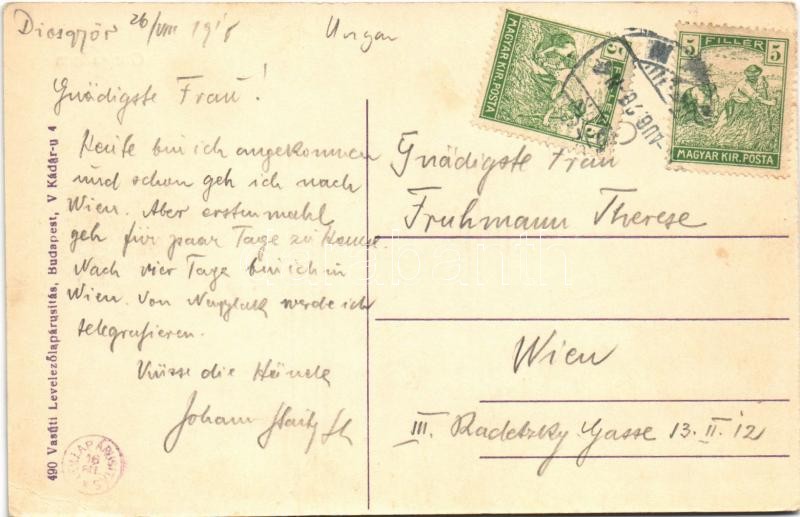 Diosgyőr 26/VIII 1918
Ungarn
Gnädigste Frau!
Heute bin ich angekommen
und schon geh ich nach
Wien. Aber erstenmahl
geh für paar Tage zu Hause.
Nach vier Tage bin ich in
Wien. Von Nagylak werde ich
telegrafieren.
Küsse die Hände
Johann
Gnädigste Frau
Fruhmann Therese
Wien
III. Radetzky Gasse 13. II. 12
490 Vasúti Levelezőlapárusítás, Budapest, V Kádár-u 4
5 FILLÉR 5
MAGYAR KIR. POSTA
5 FILLÉR 5
MAGYAR KIR. POSTA